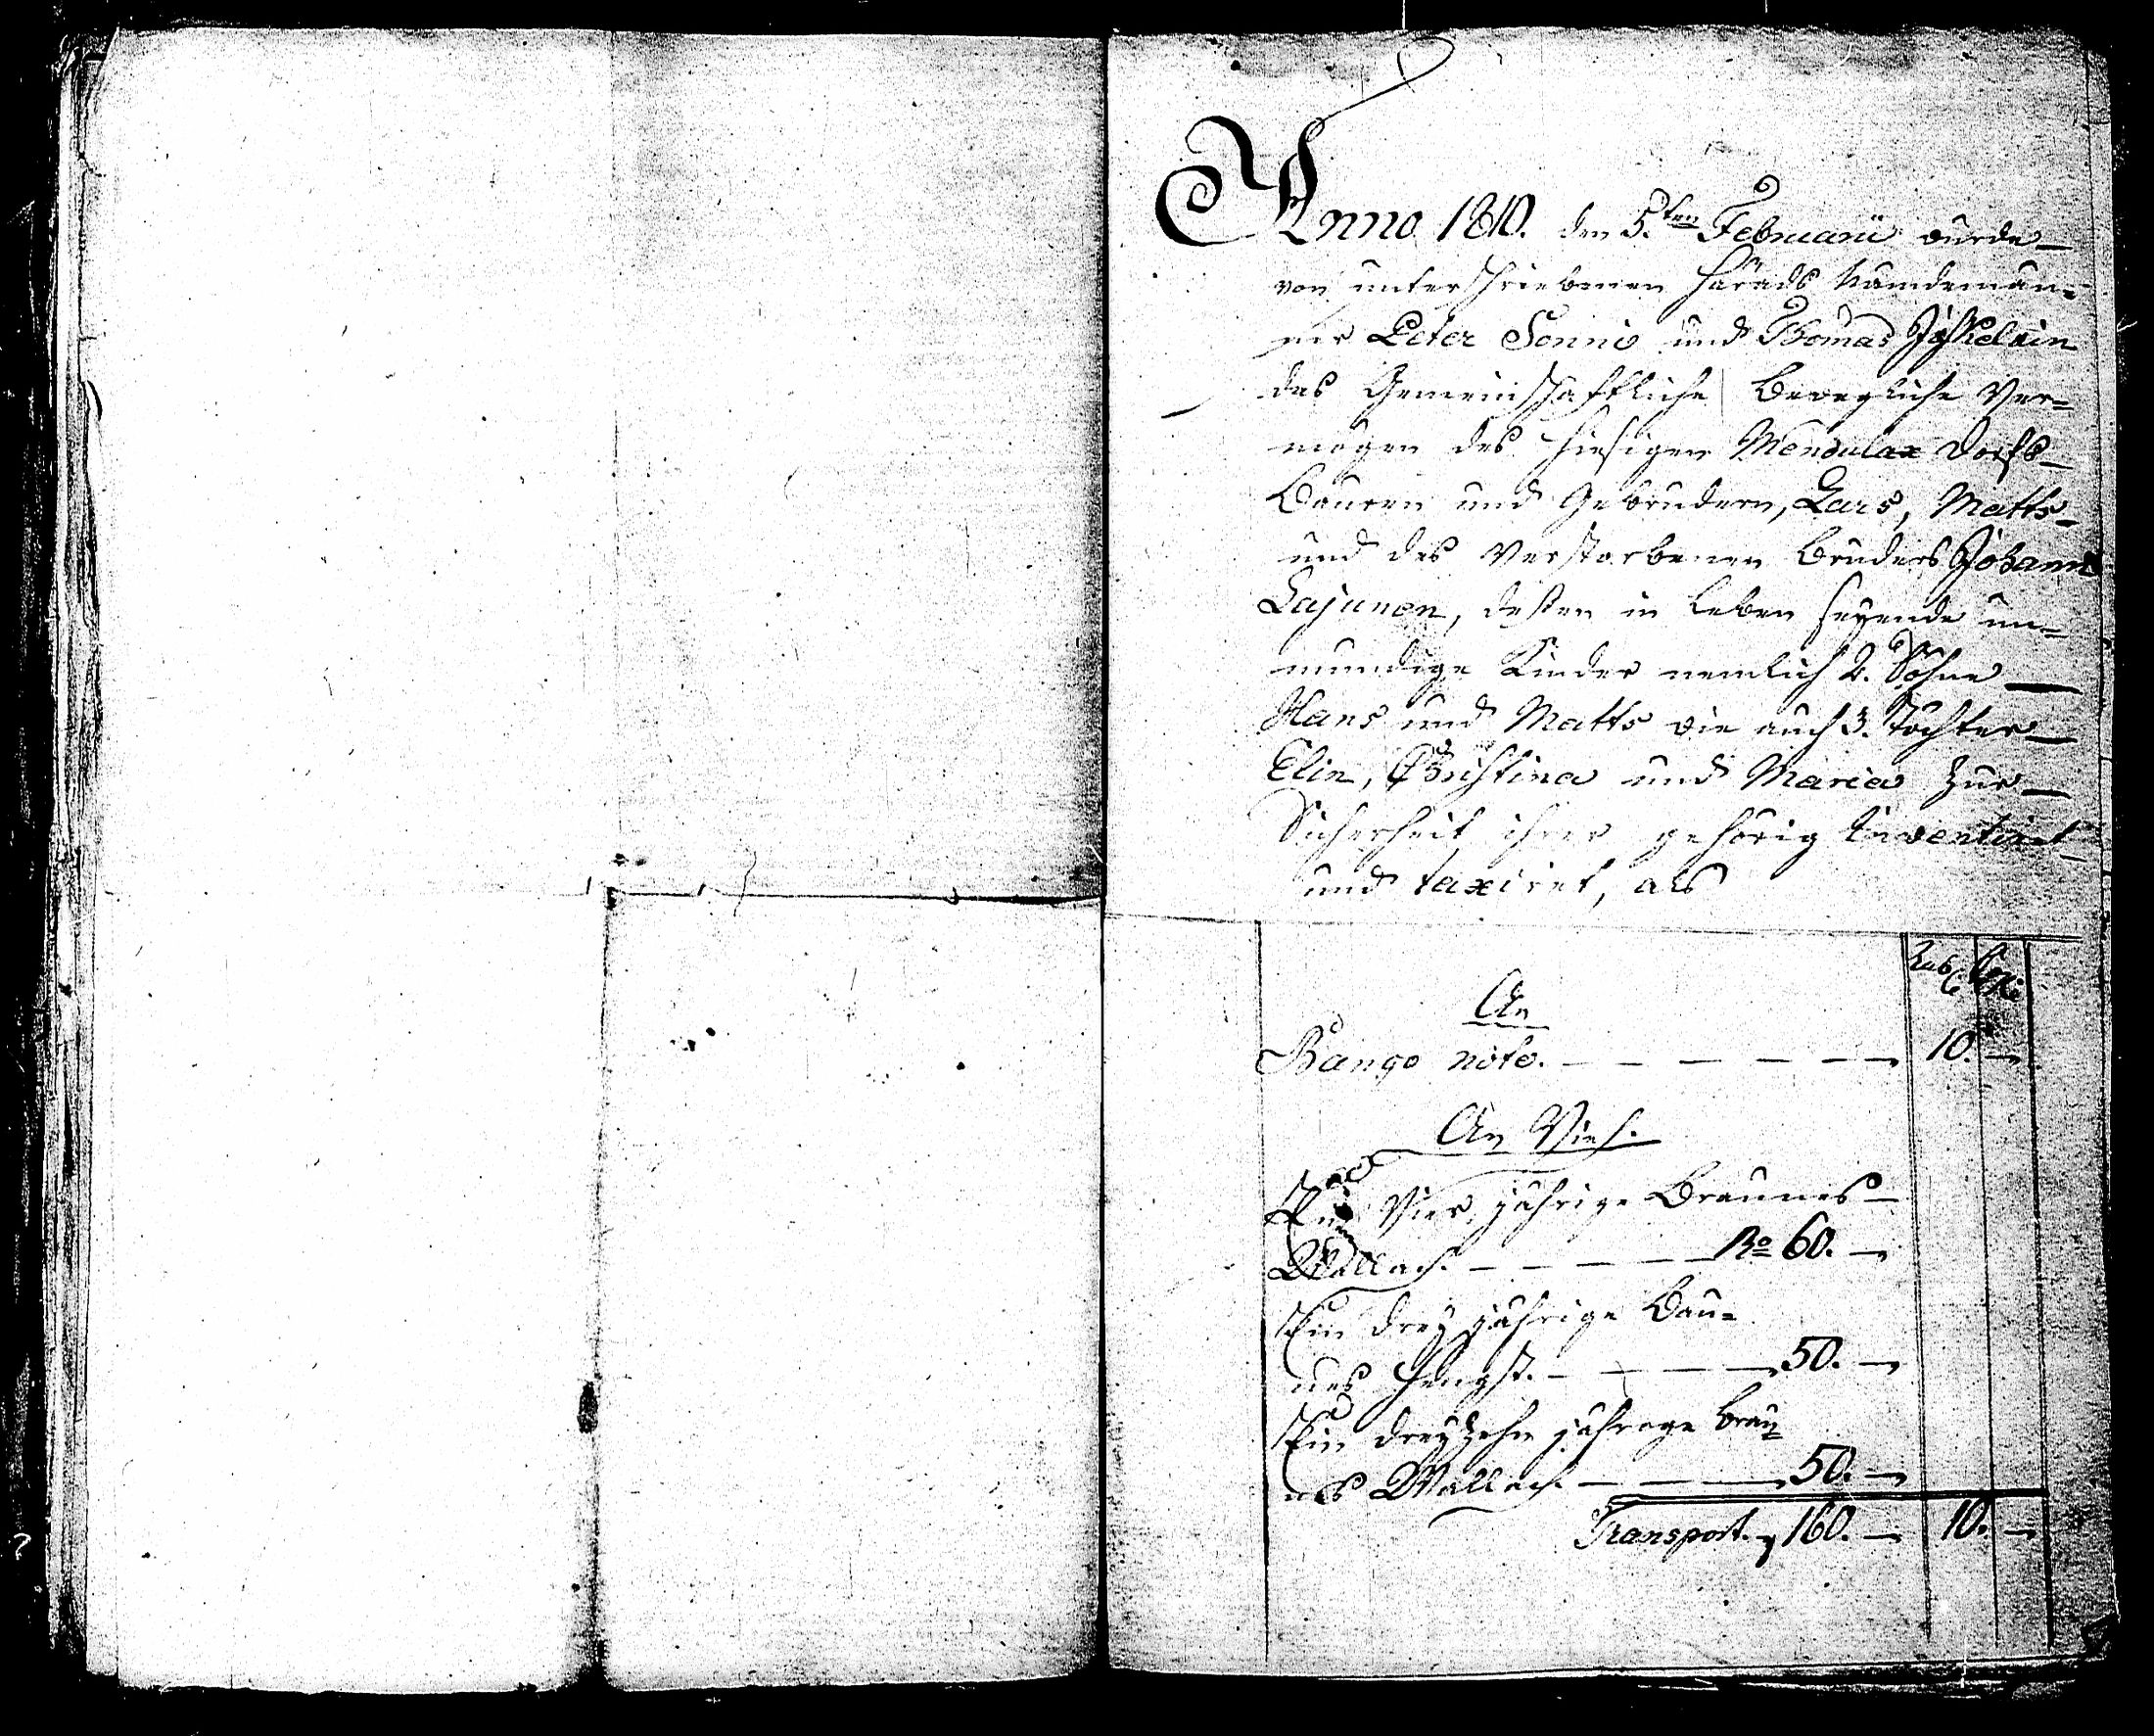 Anno 1810. den 5.ten Februarii wurde
von unterschriebenen Härads Nämdemän=
ner Peter Sonni und Thomas Jäskeläin
das Gemeinschaftliche Bewegliche Ver=
mögen des hiesigen Mensulax Dorfs
Bauren und Gebrudern, Lars, Matts
und des Verstorbenen Bruders Johann
Lajunen, deßen in Leben seyende un=
mundige Kinder nemlich 2. Söhne
Hans und Matts wie auch 3. Töchter
Elin, Christina und Maria zur
Sicherheit ihrer gehörig Inventiret
und taxiret, als
Rub. Kop.
An
Bango note. 10.
An Vieh.
Ein Vier jährige Braunes
Wallach. Ro 60.
Ein drey jährige Bau=
nes Hengst. 50.
Ein dreyzehn jahrege brau=
nes Wallach. 50.
Transport. 160. 10.